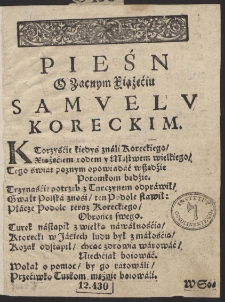 PIEŚN
O Zacnym Xiążęćiu
SAMVELV
KORECKIM.
KTorzyśćie kiedyś ználi Koreckiego/
Xiążęćiem rodem y Męstwem wielkiego/
Tego świát poznym opowiádáć wszędzie
Potomkom będzie.
Trzynaśćie potrzeb z Turczynem odpráwił/
Gwałt Polská znośi/ ten Podole stáwił:
Płáczże Podole teraz Koreckiego/
Obrońce swego.
Turek nástąpił z wielką náwálnośćią/
Korecki w Jáśiech ludu był z máłośćią/
Kozak odstąpił/ chcąc zdrowiá wárowáć/
Niechćiał boiowáć.
Wołał o pomoc/ by go rátowáli/
Przećiwko Turkom mężnie boiowáli.
12.430